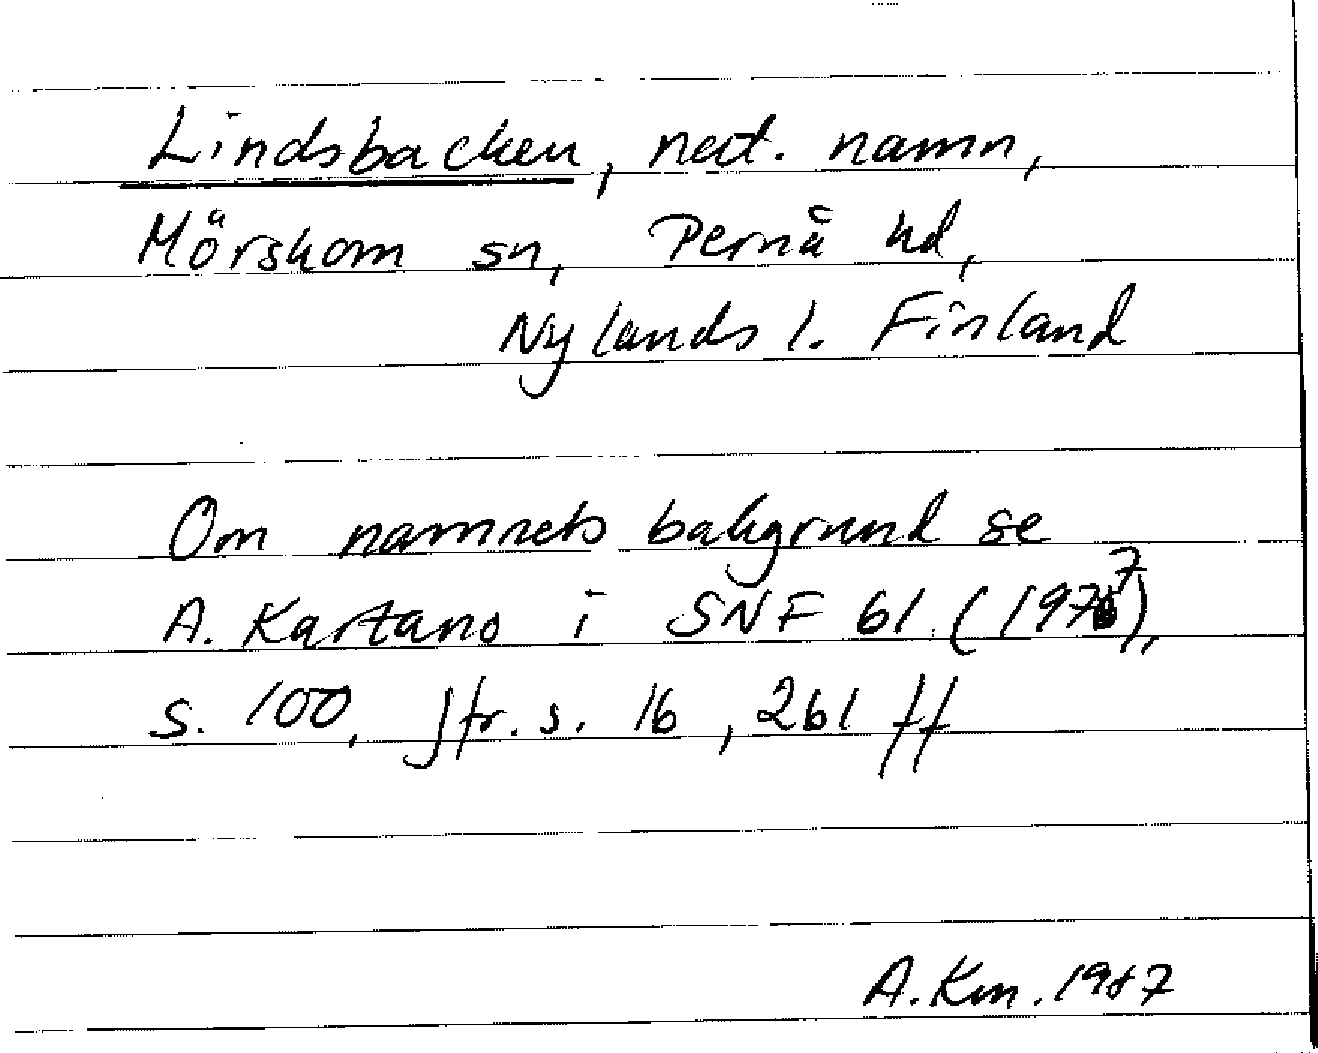 Lindsbacken, nect. namn,
Mörskom sn, Pernå hd,
Nylands l. Finland
Om namnets bakgrund se
A. Kartano i SNF 61 (1977),
s. 100, jfr. s. 16, 261 ff
A. Km. 1987